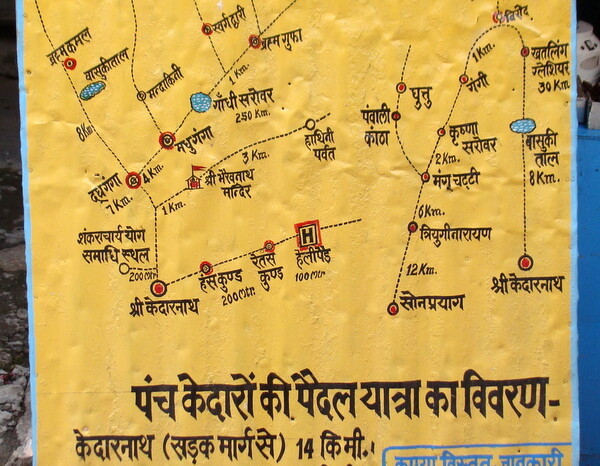 स्वर्गद्वारी
ब्रह्मकमल
ब्रह्म गुफा
1 Km.
खतलिंग
ग्लेशियर
30 Km.
वासुकीताल
1 Km.
गाँधी सरोवर
250 Km.
घुत्तु
मन्दाकिनी
8 Km.
हाथिनी
पर्वत
पंवाली
कांठा
कृष्णा
सरोवर
बासुकी
तॉल
मधुगंगा
3 Km.
2 Km.
दूधगंगा
4 Km.
श्री भैरवनाथ
मन्दिर
मंगू चट्टी
8 Km.
7 Km.
1 Km.
6 Km.
शंकराचार्य योग
समाधि स्थल
त्रियुगीनारायण
200 Mtr.
H
रेतस
कुण्ड
हेलीपैड
100 Mtr.
12 Km.
हंस कुण्ड
200 Mtr.
श्री केदारनाथ
सोनप्रयाग
श्री केदारनाथ
पंच केदारों की पैदल यात्रा का विवरण-
केदारनाथ (सड़क मार्ग से) 14 कि.मी.।